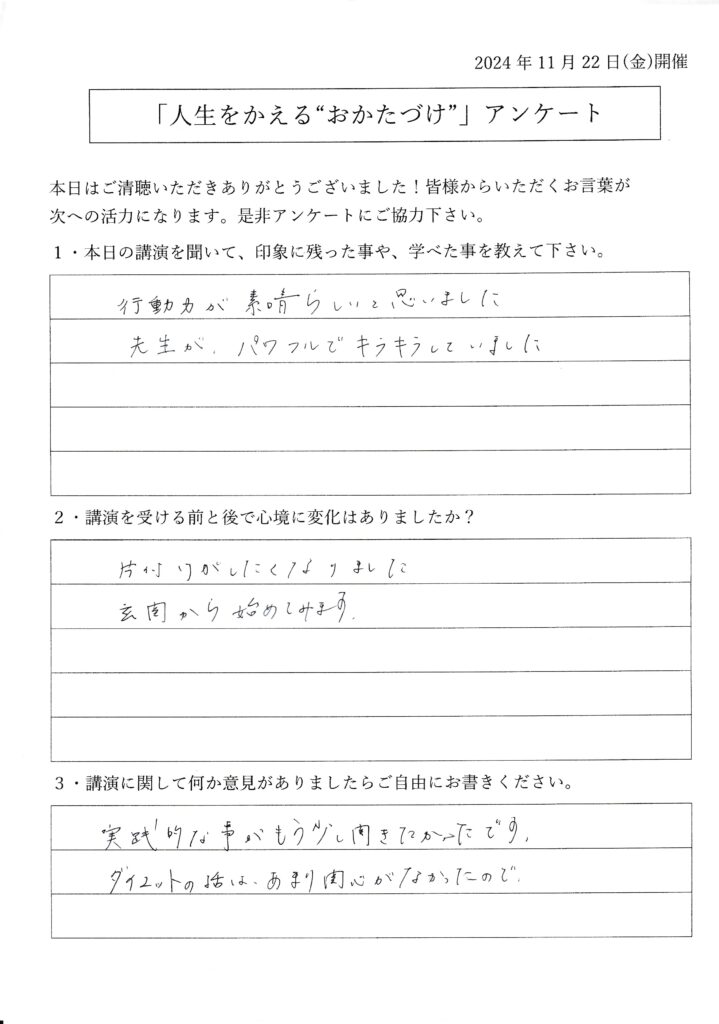 2024 年 11 月 22 日(金)開催
「人生をかえる“おかたづけ”」アンケート
本日はご清聴いただきありがとうございました！皆様からいただくお言葉が
次への活力になります。是非アンケートにご協力下さい。
１・本日の講演を聞いて、印象に残った事や、学べた事を教えて下さい。
行動力が素晴らしいと思いました
先生が、パワフルでキラキラしていました
２・講演を受ける前と後で心境に変化はありましたか？
片付けがしたくなりました
玄関から始めてみます。
３・講演に関して何か意見がありましたらご自由にお書きください。
実践的な事がもう少し聞きたかったです。
ダイエットの話は、あまり関心がなかったので。